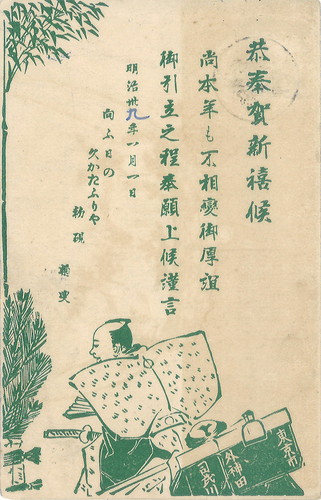 恭奉賀新禧候
尚本年も不相變御厚誼
御引立之程奉願上候謹言
明治卅九年一月一日
向ふ日の
久かたふりや
初硯
東京市
外神田